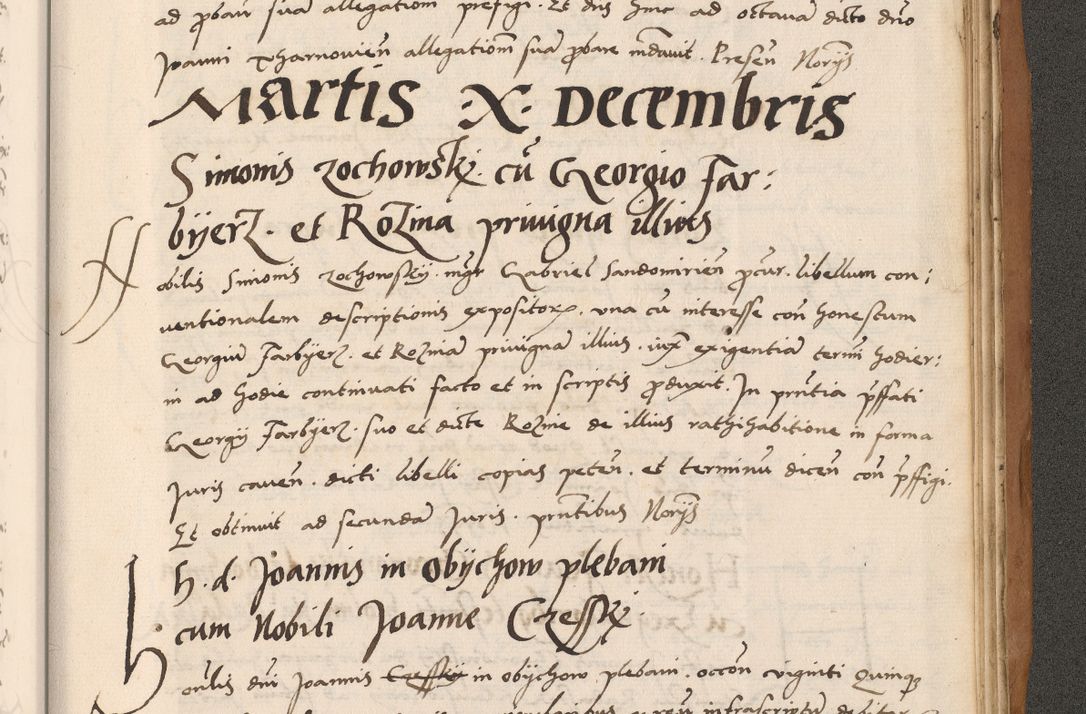 ad pbań suā allegatiom prefigi. Et dns hinc ad octavā dicto dno
Joanni Tharnovień allegationē suā pbare mdavit. Presen Norijs
Martis .X. Decembris
Simonis zochowskj. cū Georgio Far:
byerz. et Rozina privigna illius
Nobilis Simonis zochowskij. mgr Gabriel Sandomirien pcur. libellum con:
ventionalem descriptionis expositor. una cū interesse con honestum
Georgiū Farbyerz. et Roziniā privignā illius. iux exigentiā termi hodier:
ni ad hodie continuati facto et in scriptis pduxit. In prntia pffati
Georgij Farbyerz. suo et dicte Rozine de illius rathihabitione in forma
Juris caven. dicti libelli copias peten. et terminū dicen con pffigi.
Et obtinuit ad secundā Juris. prntibus Norijs
h. d. Joannis in obychow plebani
cum Nobili Joanne Czessky
Honlis dni Joannis Czessky in obychow plebani. occon viginti Quinq
infrascriptū debitor